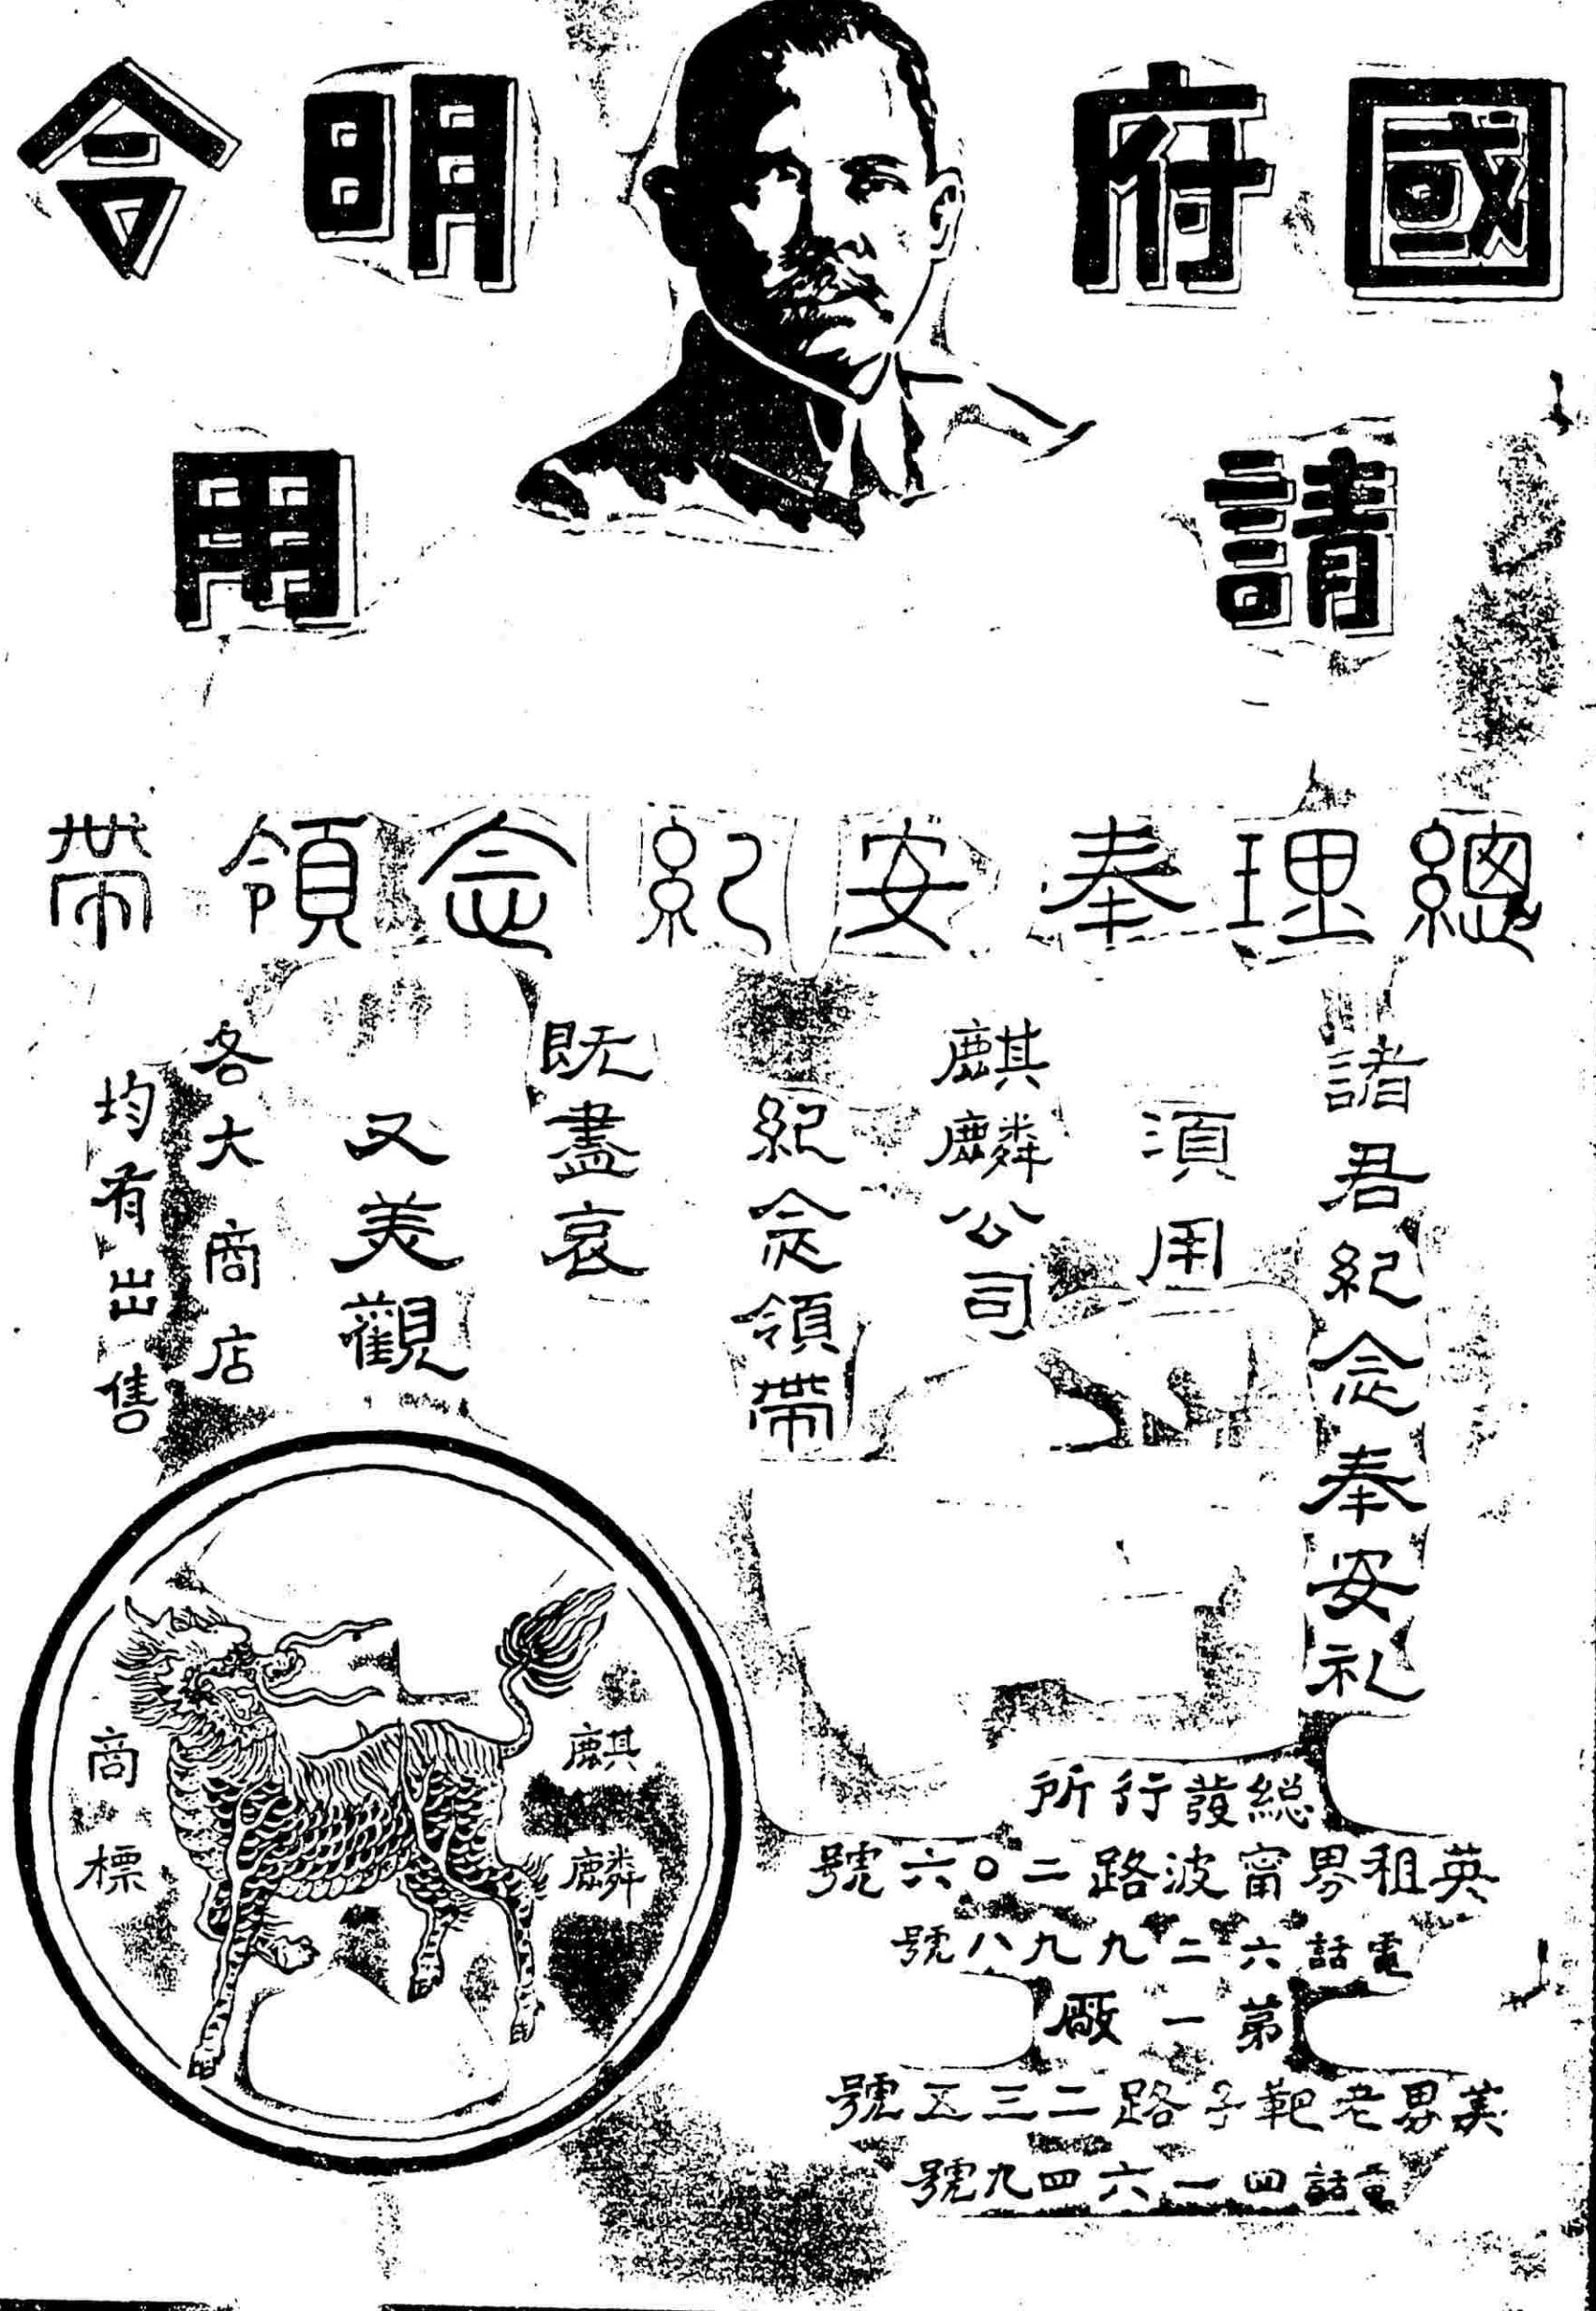 國府明令
請用
總理奉安紀念領帶
諸君紀念奉安礼
須用
麒麟公司
紀念領帶
既盡哀
又美觀
各大商店
均有出售
麒麟
商標
総發行所
英租界甯波路二〇六號
電話六二九九八號
第一廠
美界老靶子路二三五號
電話四一六四九號